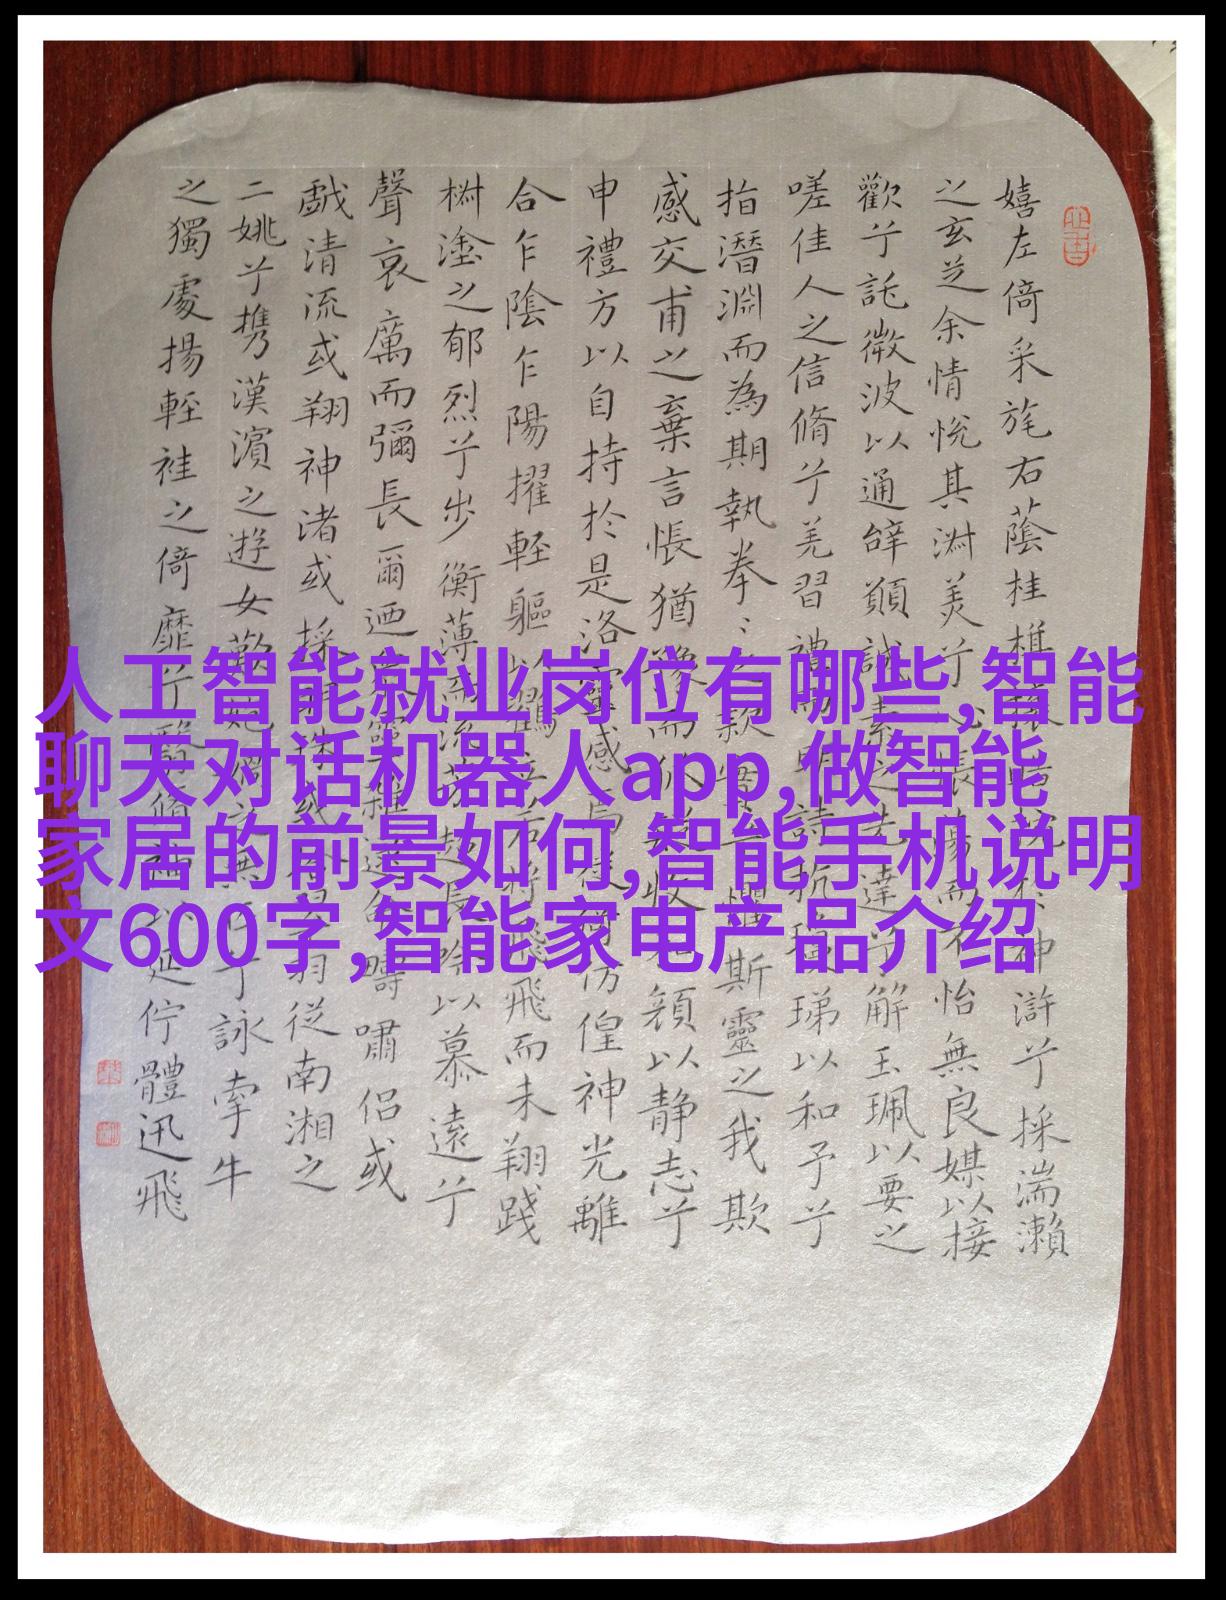 人工智能就业岗位有哪些,智能
聊天对话机器人app,做智能
家居的前景如何,智能手机说明
文600字,智能家电产品介绍
嬉左倚采旄右蔭桂旗神滸兮採湍瀨
之玄芝余情悅其淑美兮悵而不怡無良媒以接
歡兮託微波以通辭願誠素之先達兮解玉珮以要之
嗟佳人之信脩兮羌習禮詩抗珶以和予兮
指潛淵而為期執拳款實懼斯靈之我欺
感交甫之棄言悵猶豫而收顏以静志兮
申禮方以自持於是洛靈感焉仿偟神光離
合乍陰乍陽擢輕軀以鶴將飛飛而未翔踐
樹塗之郁烈兮步衡薄而流芳超長吟以慕遠兮
聲哀厲而彌長爾迺靈雜疇嘯侶或
戲清流或翔神渚或採珠或羽從南湘之
二姚兮攜漢濱之遊女歎之無兮詠牽牛
之獨處揚輕袿之倚靡兮翳脩延佇體迅飛